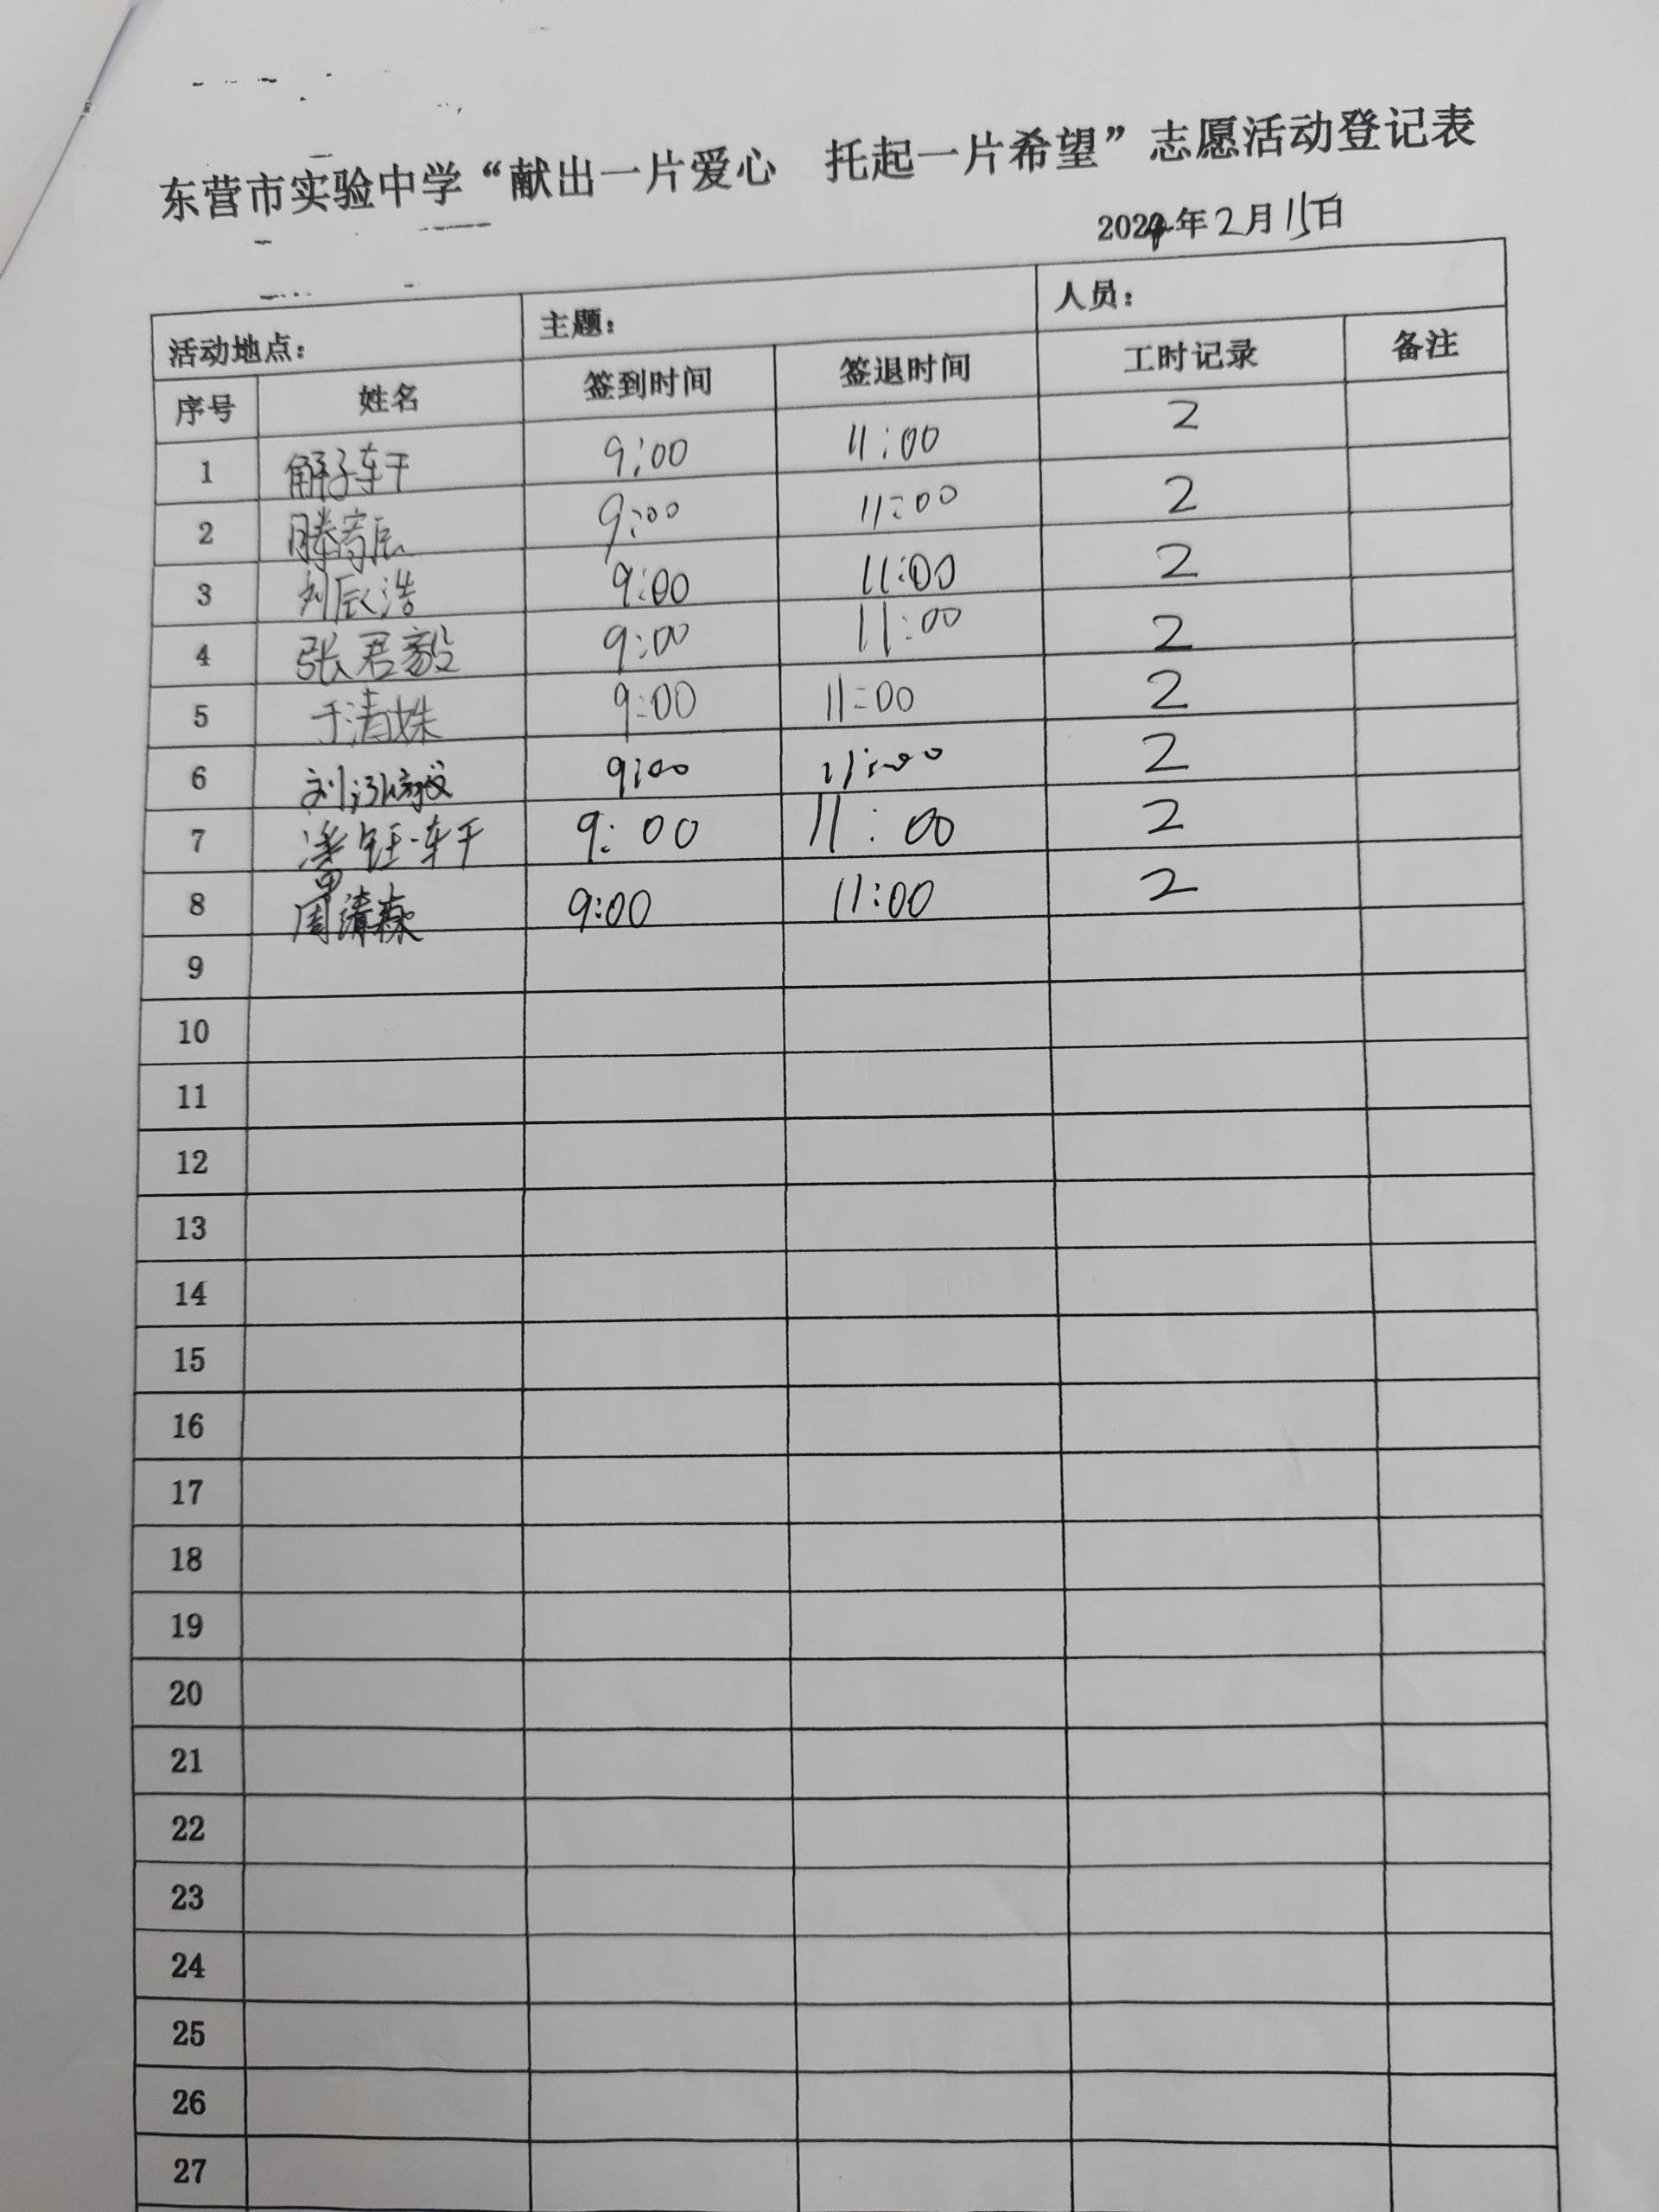 东营市实验中学“献出一片爱心 托起一片希望”志愿活动登记表
2024年2月15日
活动地点： 主题： 人员：
序号 姓名 签到时间 签退时间 工时记录 备注
1 解子轩 9:00 11:00 2
2 滕高辰 9:00 11:00 2
3 刘辰浩 9:00 11:00 2
4 张君毅 9:00 11:00 2
5 于清姝 9:00 11:00 2
6 刘泓 9:00 11:00 2
7 潘钰轩 9:00 11:00 2
8 周清森 9:00 11:00 2
9
10
11
12
13
14
15
16
17
18
19
20
21
22
23
24
25
26
27